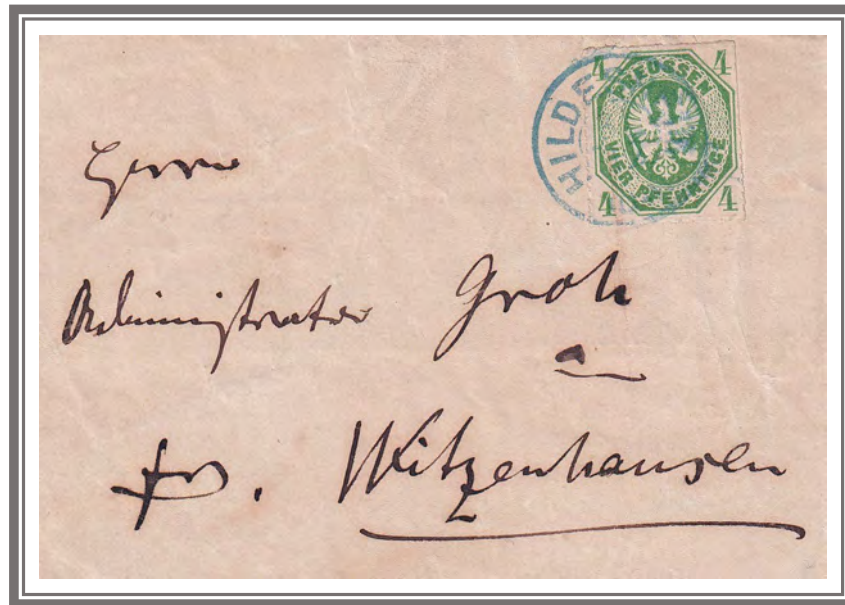 4 4
PREUSSEN
VIER PFENNINGE
4 4
HILDE
Herrn
Administrator Groh
fr. Witzenhausen